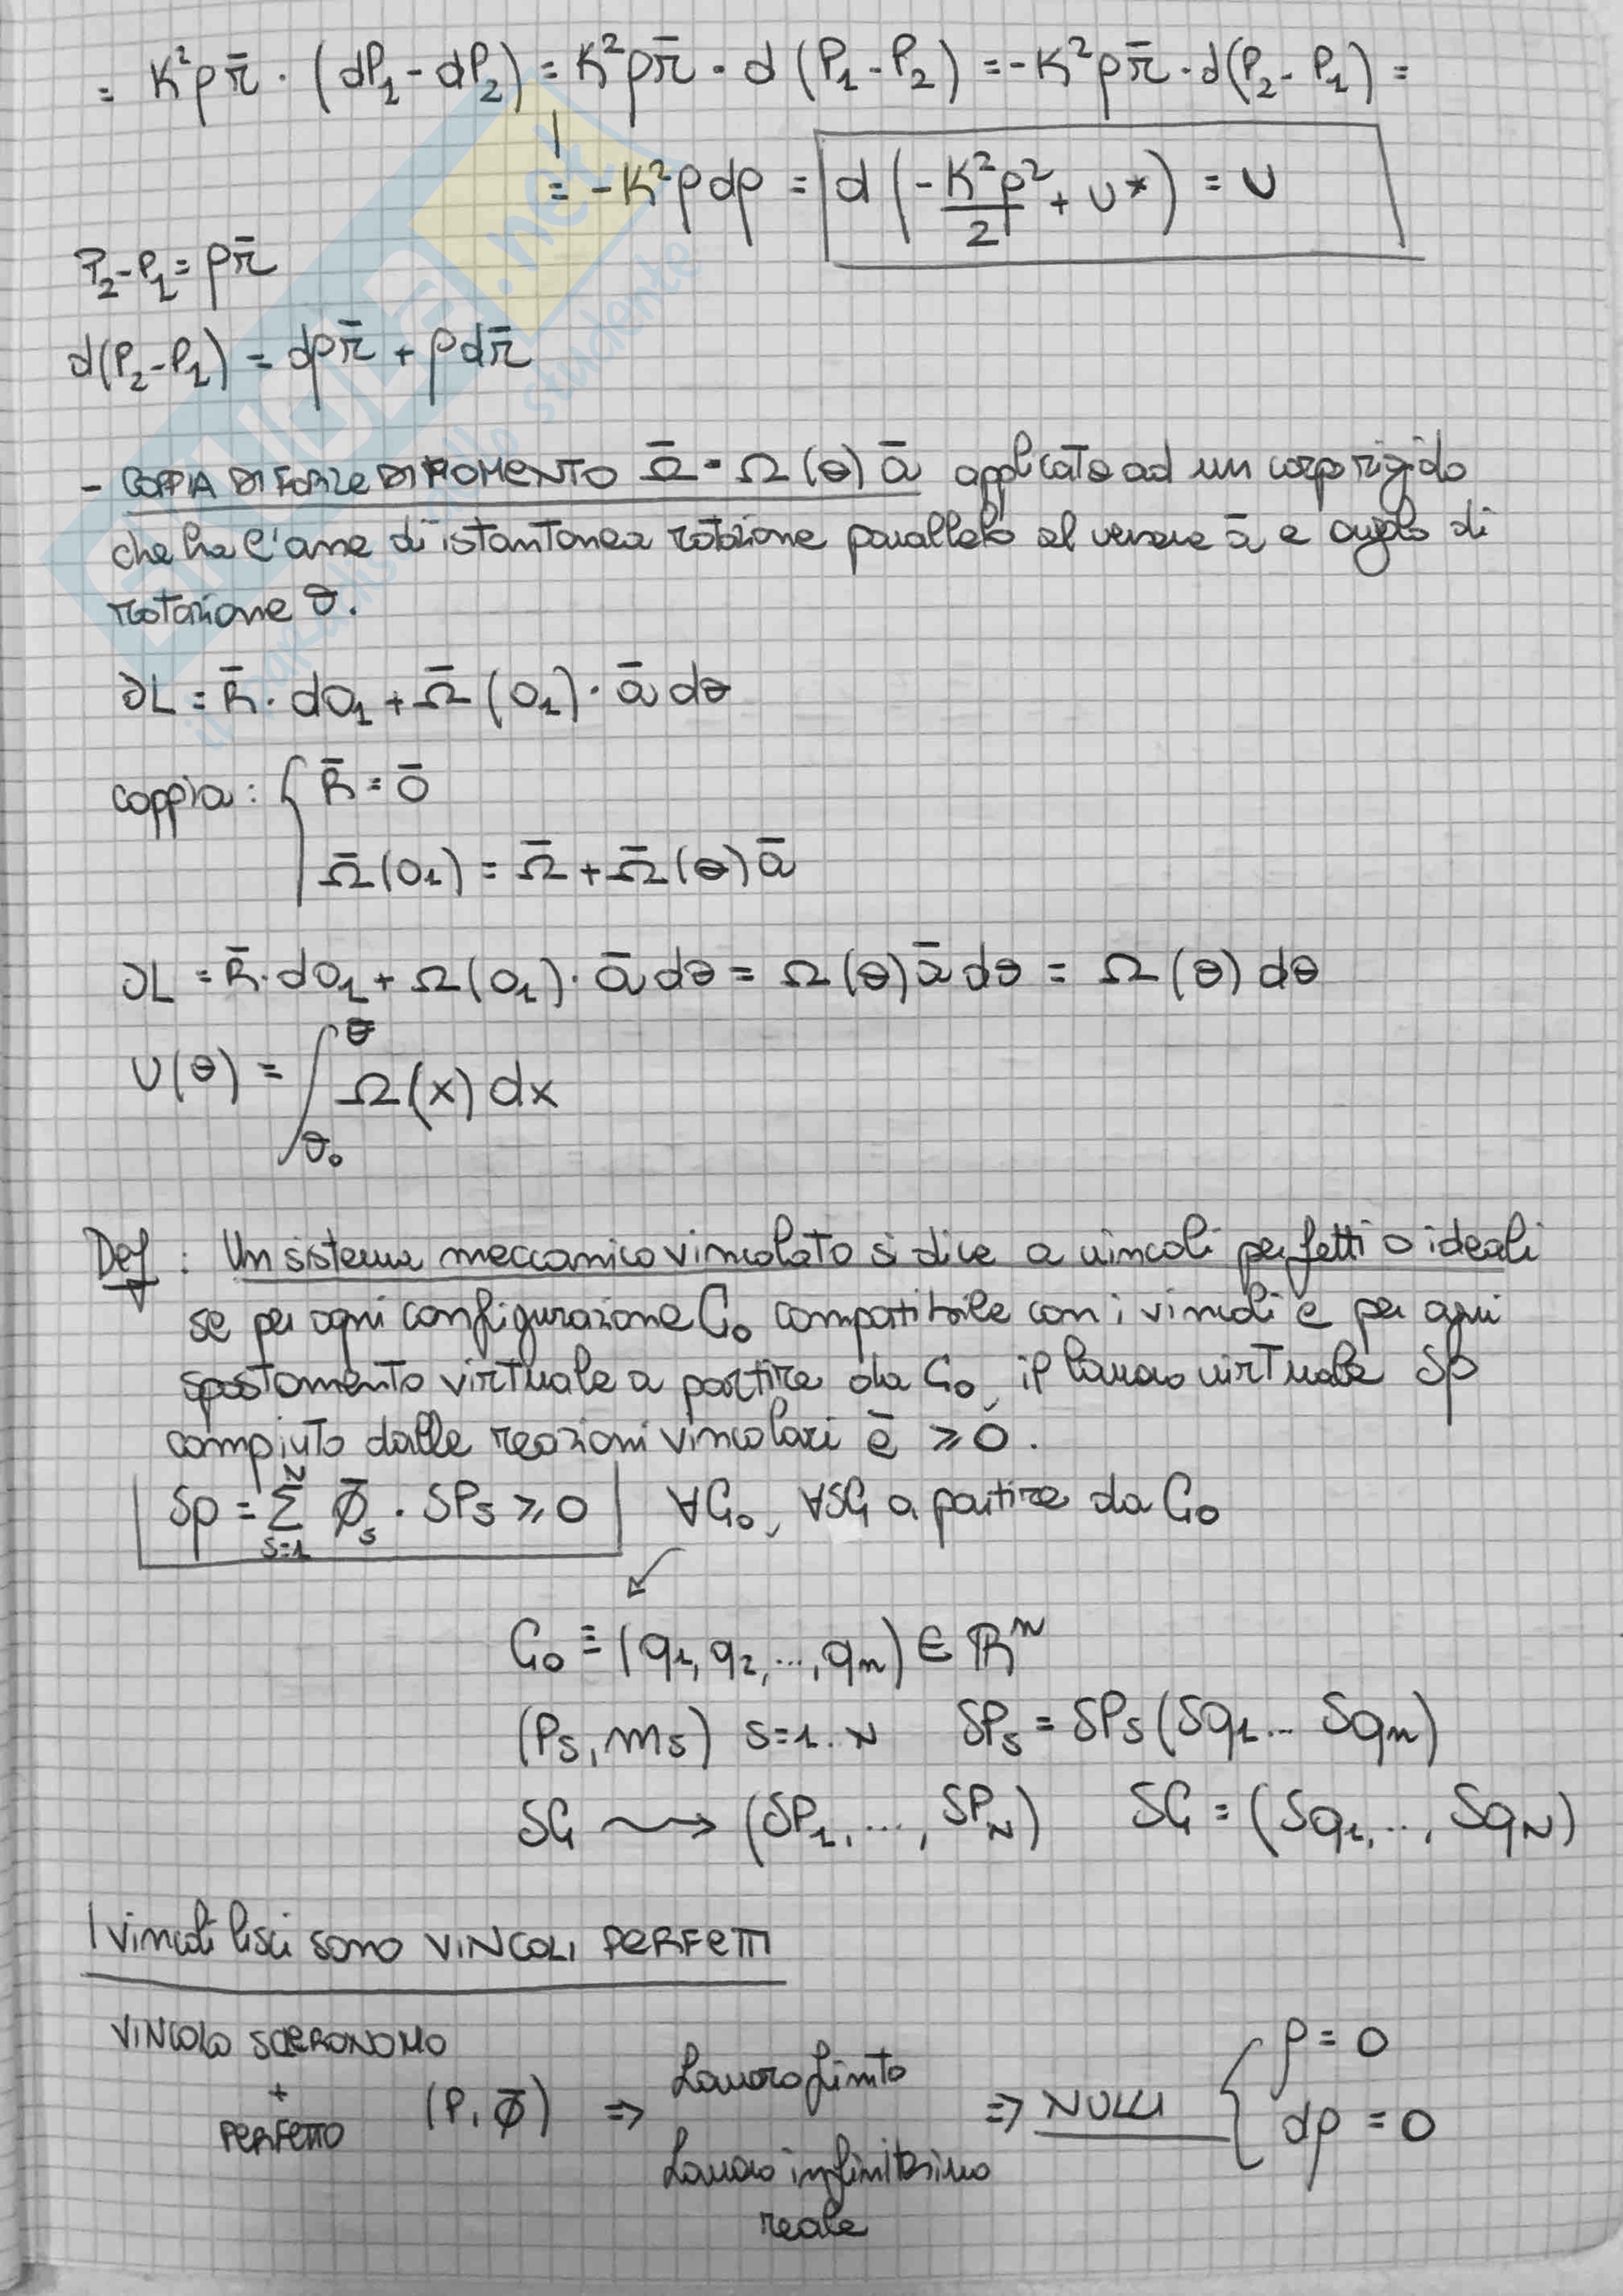 = K²ρr̄ · (dP₁ - dP₂) = K²ρr̄ · d(P₁ - P₂) = -K²ρr̄ · d(P₂ - P₁) =
= -K²ρdρ = d(-K²ρ²/2 + U*) = U
P₂ - P₁ = ρr̄
d(P₂ - P₁) = dρr̄ + ρdr̄
- COPPIA DI FORZE DI MOMENTO Ω̄ = Ω(θ)ā applicata ad un corpo rigido
che ha l'asse di istantanea rotazione parallelo al versore ā e angolo di
rotazione θ.
∂L = R̄ · dO₁ + Ω̄(O₁) · ā dθ
coppia: { R̄ = 0̄
Ω̄(O₁) = Ω̄ + Ω̄(θ)ā
∂L = R̄ · dO₁ + Ω(O₁) · ā dθ = Ω(θ)ā dθ = Ω(θ) dθ
U(θ) = ∫_θ₀^θ Ω(x) dx
Def: Un sistema meccanico vincolato si dice a vincoli perfetti o ideali
se per ogni configurazione C₀ compatibile con i vincoli e per ogni
spostamento virtuale a partire da C₀, il lavoro virtuale δρ
compiuto dalle reazioni vincolari è ≥ 0.
δρ = Σ_{s=1}^N Φ̄ₛ · δPₛ ≥ 0 ∀C₀, ∀δC a partire da C₀
C₀ ≡ (q₁, q₂, ..., qₙ) ∈ ℝⁿ
(Pₛ, mₛ) s=1..N δPₛ = δPₛ(δq₁... δqₙ)
δC ⇝ (δP₁, ..., δP_N) δC = (δq₁, ..., δq_N)
I vincoli lisci sono VINCOLI PERFETTI
VINCOLO SCLERONOMO
+
PERFETTO (P, Φ̄) ⇒ Lavoro finito
Lavoro infinitesimo
reale
⇒ NULLI { ρ = 0
dρ = 0